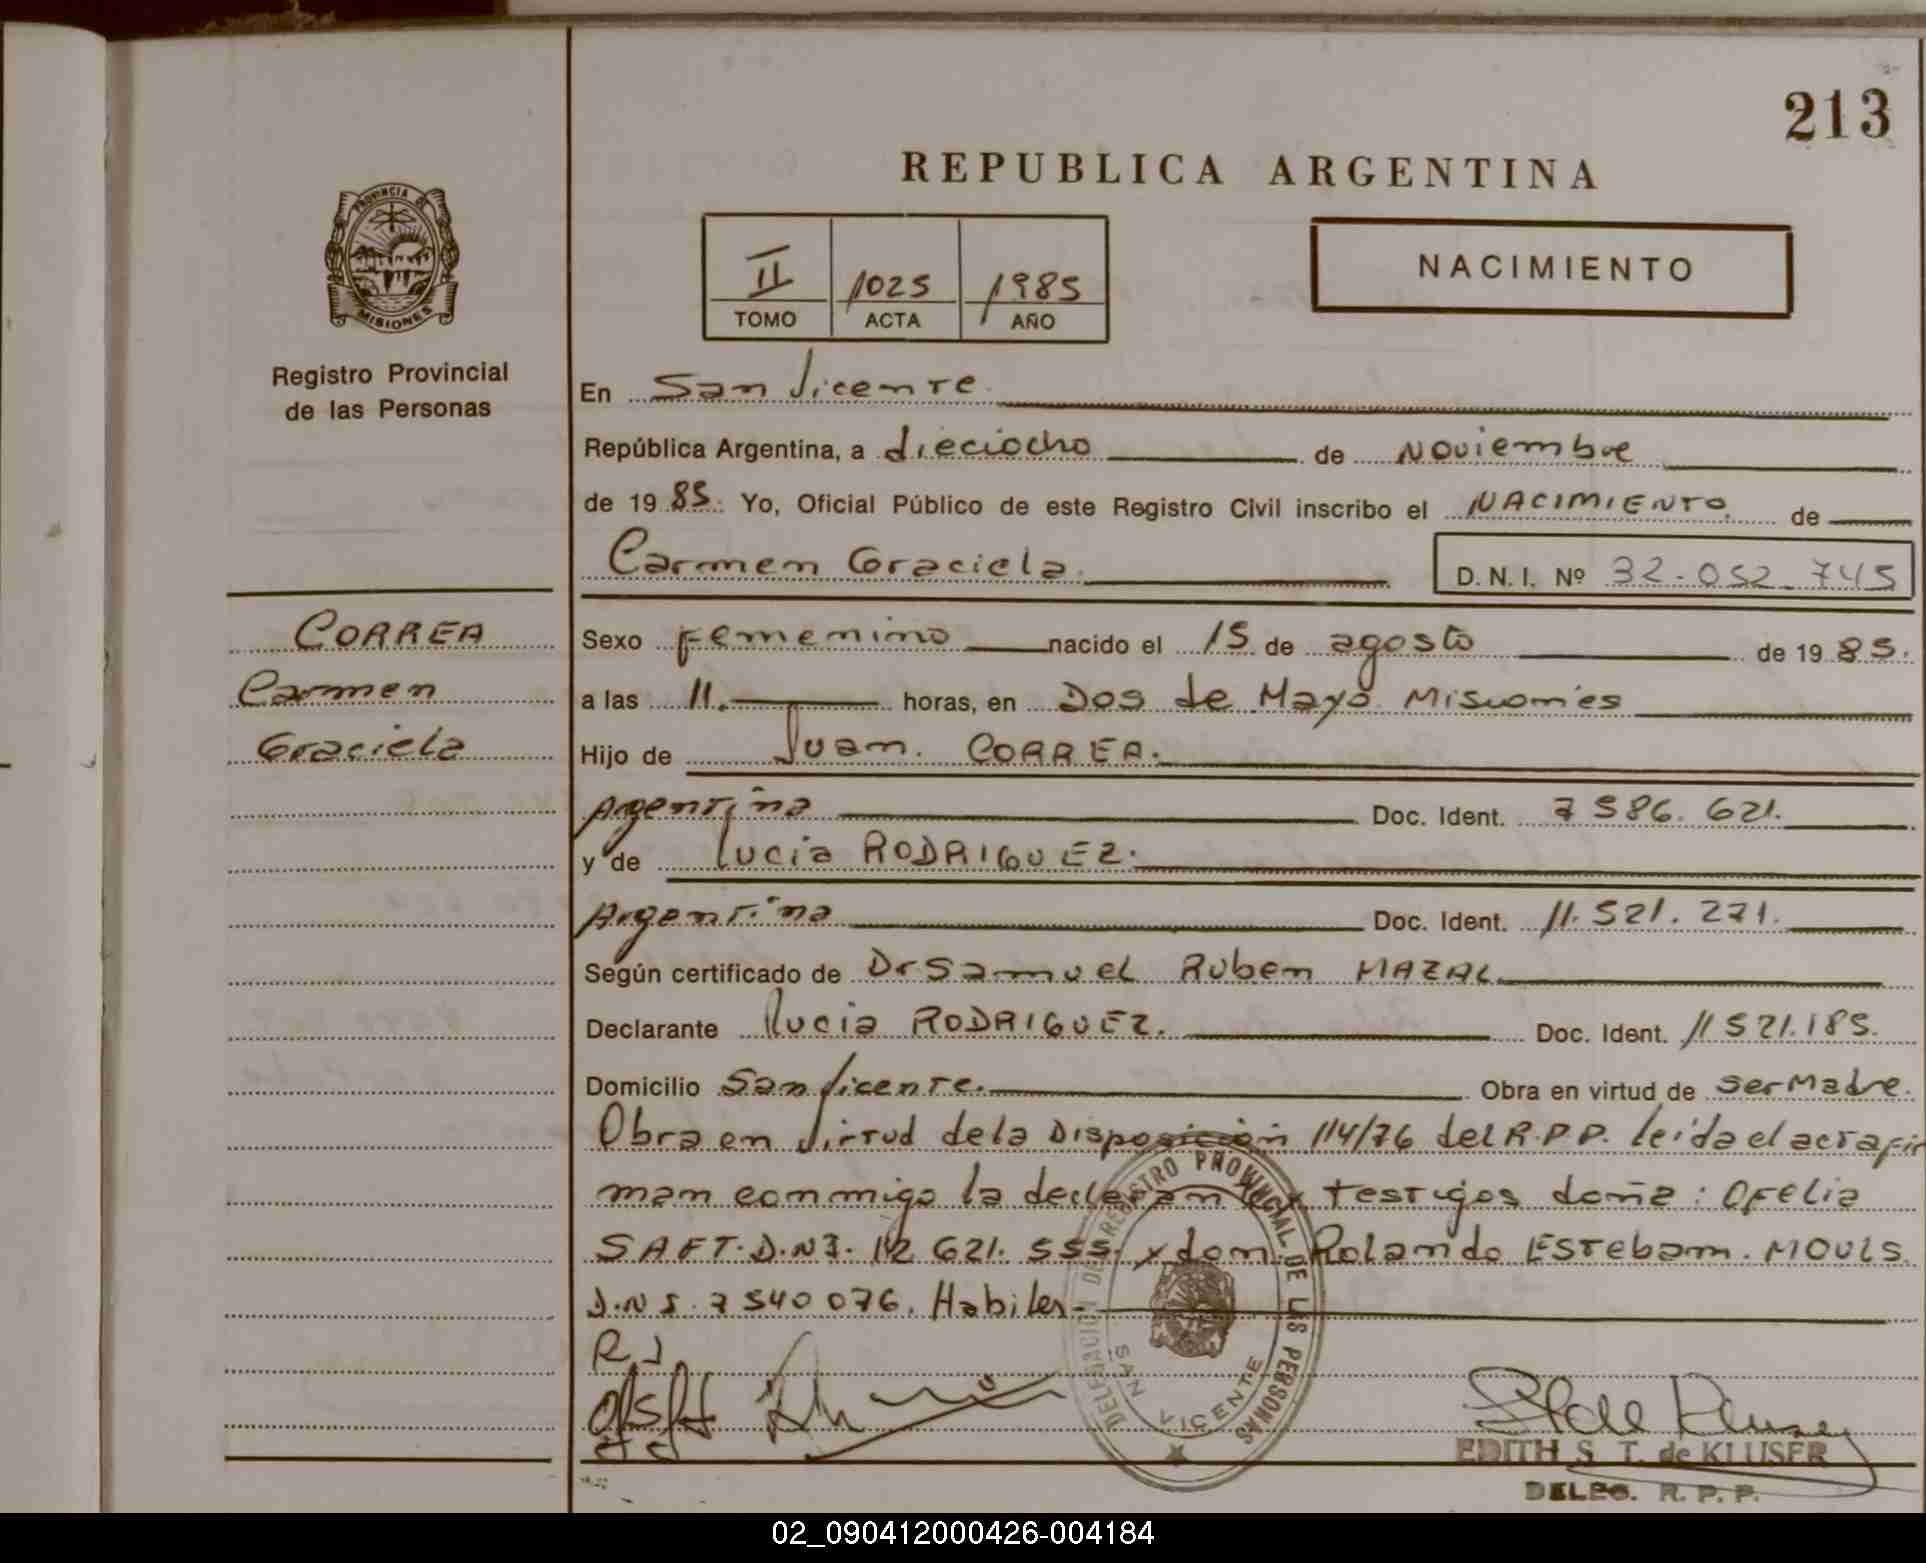 213
REPUBLICA ARGENTINA
PROVINCIA DE
MISIONES
Registro Provincial
de las Personas
II 1025 1985
TOMO ACTA AÑO
NACIMIENTO
En San Vicente
República Argentina, a dieciocho de Noviembre
de 1985. Yo, Oficial Público de este Registro Civil inscribo el NACIMIENTO de
Carmen Graciela. D. N. I. Nº 32-052-745
CORREA
Carmen
Graciela
Sexo femenino nacido el 15 de agosto de 1985.
a las 11. horas, en Dos de Mayo Misiones
Hijo de Juan. CORREA.
Argentina Doc. Ident. 7586.621.
y de Lucia RODRIGUEZ.
Argentina Doc. Ident. 11.521.271.
Según certificado de Dr Samuel Ruben MAZAL.
Declarante Lucia RODRIGUEZ. Doc. Ident. 11521.185.
Domicilio San Vicente. Obra en virtud de ser Madre.
Obra en Virtud de la Disposición 114/76 del R.P.P. leida el acta fir
man conmigo la declaran testigos doña: Ofelia
SAFT. D.N I. 12 621. 555. y don. Rolando Esteban. MOULS.
D.N I. 7540076. Habiles-
R J
DELEGACION DE REGISTRO PROVINCIAL DE LAS PERSONAS
SAN VICENTE
EDITH S. T. de KLUSER
DELEG. R. P. P.
02_090412000426-004184